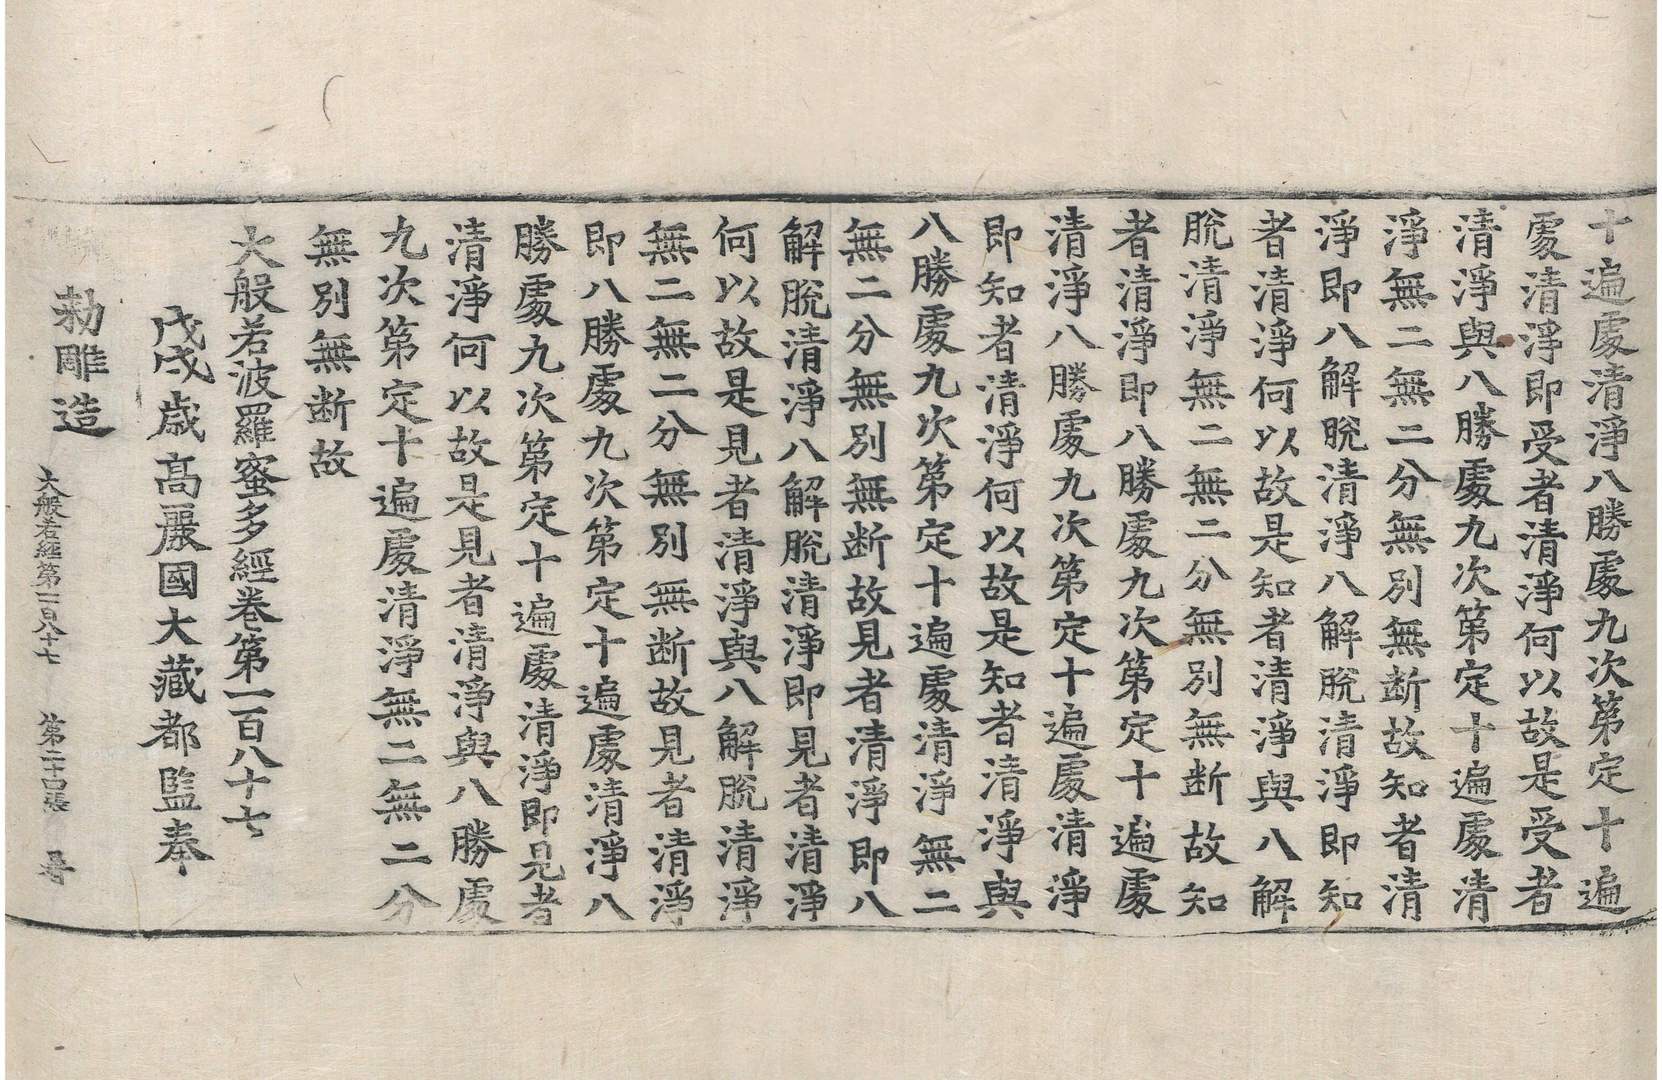 十遍處清淨八勝處九次第定十遍
處清淨即受者清淨何以故是受者
清淨與八勝處九次第定十遍處清
淨無二無二分無別無断故知者清
淨即八解脫清淨八解脫清淨即知
者清淨何以故是知者清淨與八解
脫清淨無二無二分無別無断故知
者清淨即八勝處九次第定十遍處
清淨八勝處九次第定十遍處清淨
即知者清淨何以故是知者清淨與
八勝處九次第定十遍處清淨無二
無二分無別無断故見者清淨即八
解脫清淨八解脫清淨即見者清淨
何以故是見者清淨與八解脫清淨
無二無二分無別無断故見者清淨
即八勝處九次第定十遍處清淨八
勝處九次第定十遍處清淨即見者
清淨何以故是見者清淨與八勝處
九次第定十遍處清淨無二無二分
無別無断故
大般若波羅蜜多經卷第一百八十七
戊戌歲髙麗國大藏都監奉
勑雕造
大般若經第一百八十七 第二十四張